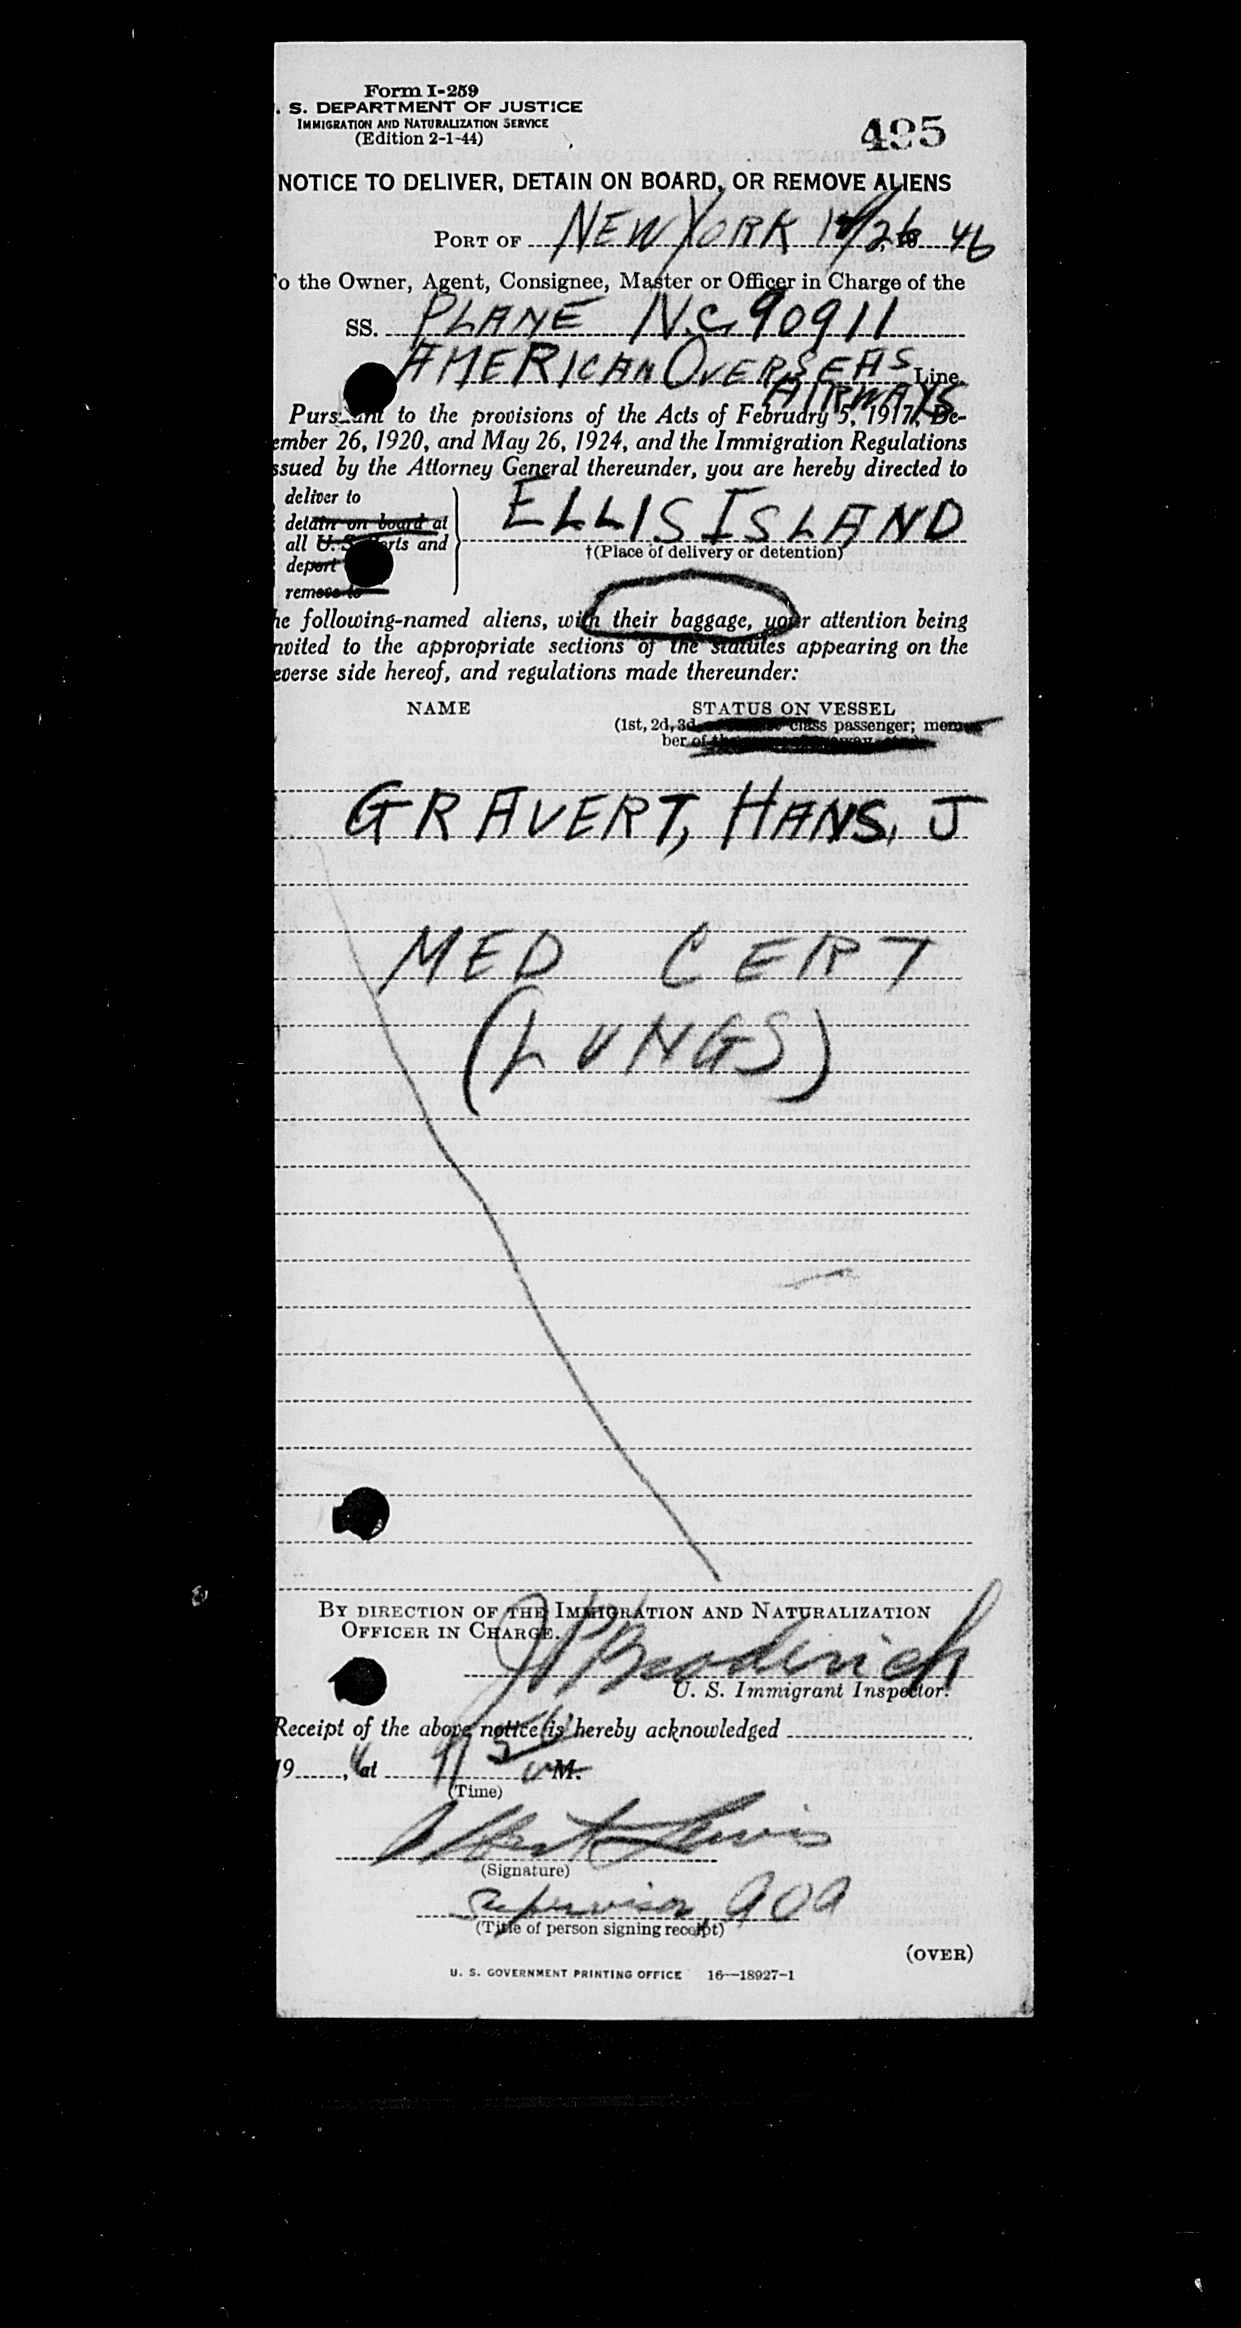 Form I-259
. S. DEPARTMENT OF JUSTICE
IMMIGRATION AND NATURALIZATION SERVICE
(Edition 2-1-44)
495
NOTICE TO DELIVER, DETAIN ON BOARD, OR REMOVE ALIENS
PORT OF NEW YORK 46
o the Owner, Agent, Consignee, Master or Officer in Charge of the
SS. PLANE N.C. 90911
AMERICAN OVERSEAS Line
AIRWAYS
Pursuant to the provisions of the Acts of February 5, 1917, De-
ember 26, 1920, and May 26, 1924, and the Immigration Regulations
ssued by the Attorney General thereunder, you are hereby directed to
deliver to
detain on board at
all U. S. ports and
deport
remove to
ELLIS ISLAND
†(Place of delivery or detention)
he following-named aliens, with their baggage, your attention being
nvited to the appropriate sections of the statutes appearing on the
everse side hereof, and regulations made thereunder:
NAME STATUS ON VESSEL
(1st, 2d, 3d class passenger; mem-
ber of
GRAVERT, HANS, J
MED CERT
(LUNGS)
BY DIRECTION OF THE IMMIGRATION AND NATURALIZATION
OFFICER IN CHARGE.
J P Broderick
U. S. Immigrant Inspector.
Receipt of the above notice is hereby acknowledged
19 , at M.
(Time)
Albert Lewis
(Signature)
Supervisor AOA
(Title of person signing receipt)
(OVER)
U. S. GOVERNMENT PRINTING OFFICE 16—18927-1